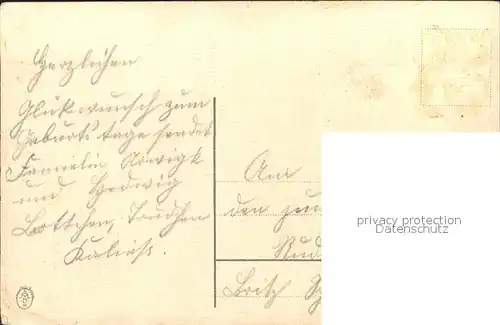 Herzlichen
Glükwunsch zum
Geburtstage sendet
Familie Nowigk
und Hedwig
Bottchen, Trudchen
An
den jun
Rud
Britz
privacy protection
Datenschutz